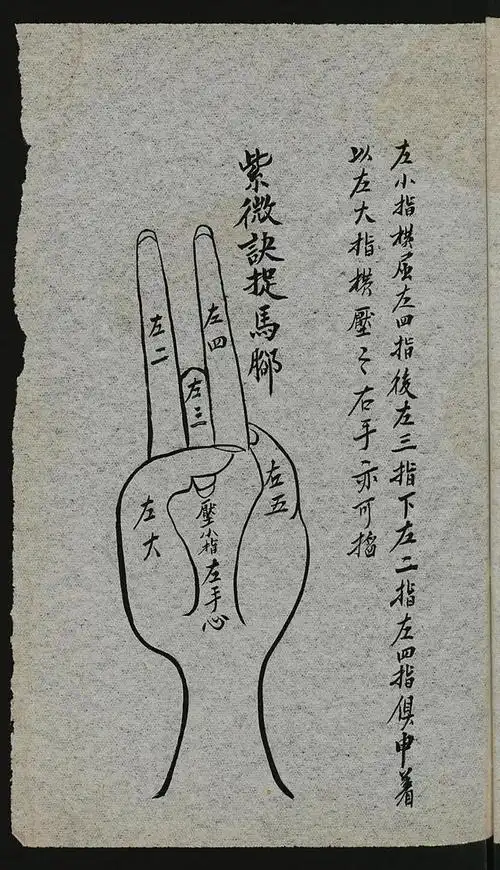 左小指橫屈左四指後左三指下左二指左四指俱申着
以左大指橫壓之右手亦可搯
紫微訣捉馬腳
左四
左二
左三
左五
左大
壓小指左手心